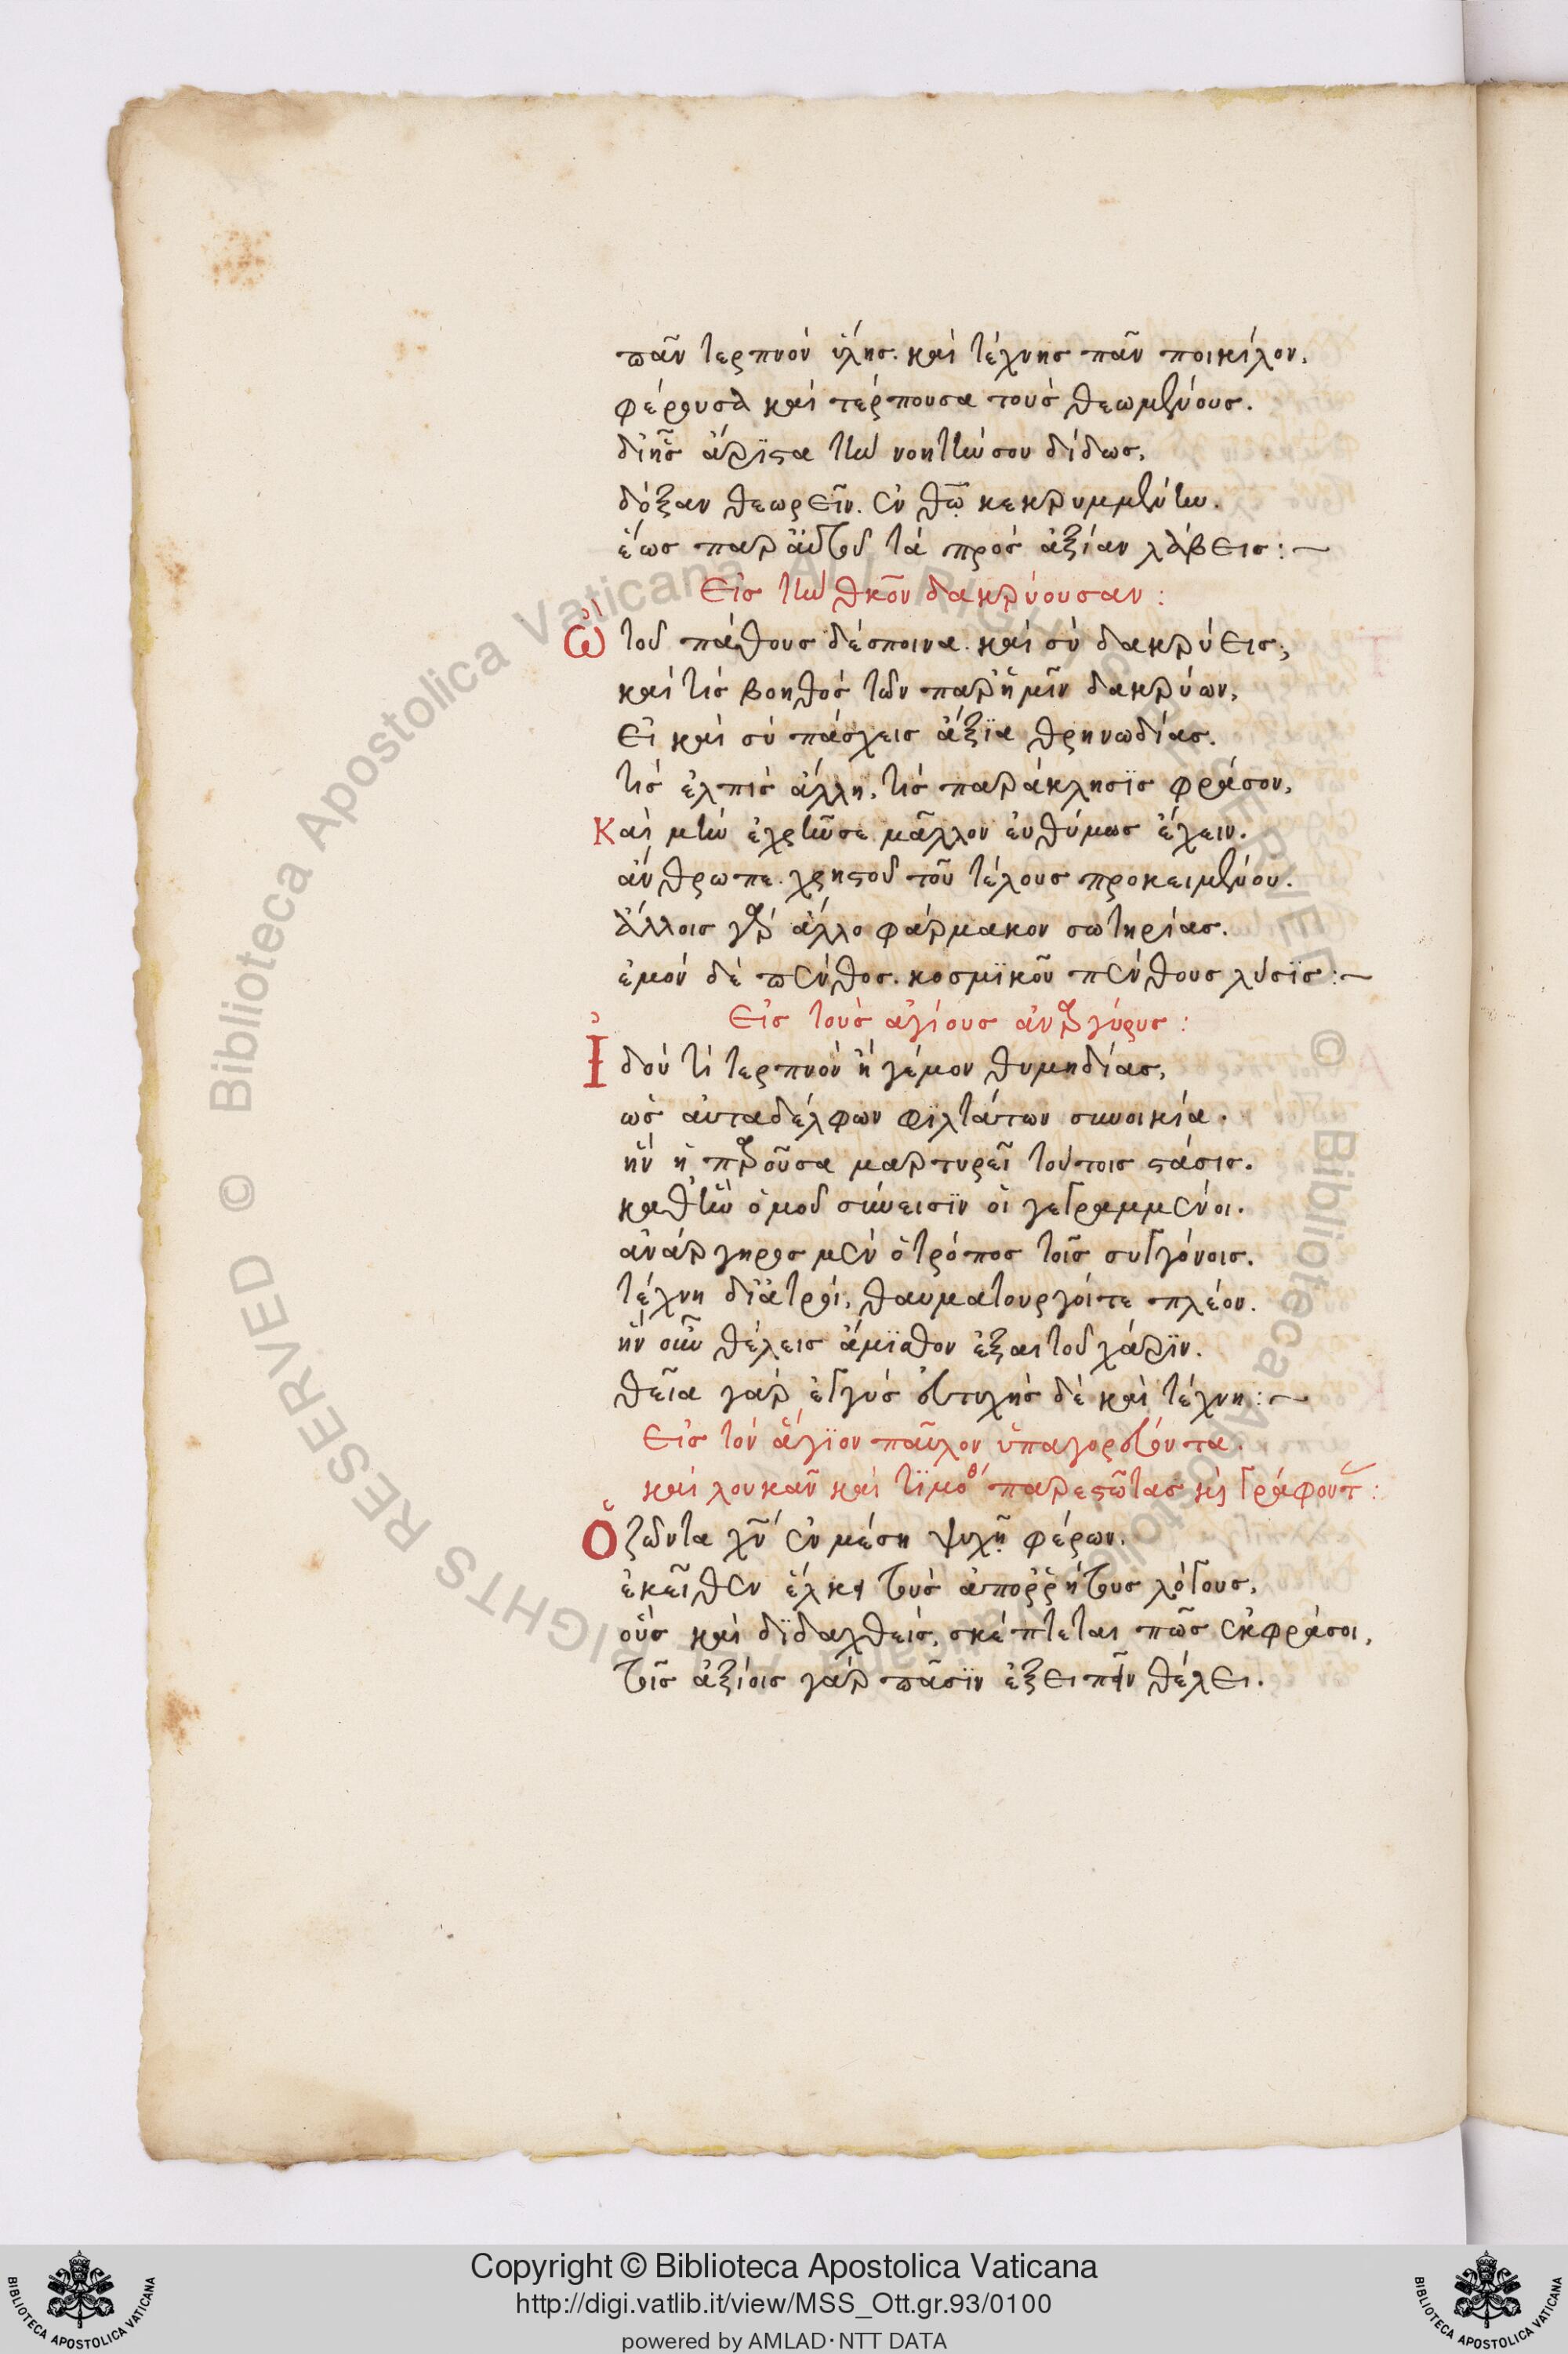 πᾶν τερπνὸν ὕλης. καὶ τέχνης πᾶν ποικίλον,
φέρουσα καὶ τέρπουσα τοὺς θεωμένους.
δι ἧς ἄριστα τὴν νοητήν σου δίδως,
δόξαν θεωρεῖν. ἐν θῶ κεκρυμμένην.
ἕως παρ αὐτοῦ τὰ πρὸς ἀξίαν λάβεις:~
Εἰς τὴν θκον δακρύουσαν:
Ὢ τοῦ πάθους δέσποινα. καὶ σὺ δακρύεις;
καὶ τίς βοηθὸς τῶν παρ ἡμῖν δακρύων,
εἰ καὶ σὺ πάσχεις ἄξϊα θρηνωδίας.
τίς ἐλπὶς ἄλλη, τίς παράκλησϊς φράσον,
Καὶ μὴν ἐχρῆν σε μᾶλλον εὐθύμως ἔχειν.
ἄνθρωπε. χρηστοῦ τοῦ τέλους προκειμένου.
ἄλλοις γὰρ ἄλλο φάρμακον σωτηρίας.
ἐμὸν δὲ πένθος. κοσμϊκοῦ πένθους λύσϊς:~
Εἰς τοὺς ἁγίους ἀναργύρους:
Ἰδού τί τερπνὸν ἢ γέμον θυμηδίας,
ὡς αὐταδέλφων φϊλτάτων συνοικία.
ἣν ἡ παροῦσα μαρτυρεῖ τούτοις στάσις.
καθ ἣν ὁμοῦ σύνεισϊν οἱ γεγραμμένοι.
ἀνάργηρος μὲν ὁ τρόπος τοῖς συγγόνοις.
τέχνη δ ϊατροὶ, θαυματουργοί τε πλέον.
ἣν οὖν θέλεις ἄμϊσθον ἐξαιτοῦ χάρϊν.
θεῖα γὰρ ἐγγὺς εὐτυχὴς δὲ καὶ τέχνη:~
Εἰς τὸν ἅγϊον παῦλον ὑπαγορεύοντα.
καὶ λουκᾶν καὶ τϊμόθ παρεστῶτας καὶ γράφοντ:
Ὁ ζῶντα χν ἐν μέση ψυχῆ φέρων.
ἐκεῖθεν ἕλκει τοὺς ἀπορρήτους λόγους,
οὓς καὶ δϊδαχθεὶς, σκέπτεται πῶς ἐκφράσοι,
τοῖς ἀξίοις γὰρ πᾶσϊν ἐξειπεῖν θέλει.
Copyright © Biblioteca Apostolica Vaticana
http://digi.vatlib.it/view/MSS_Ott.gr.93/0100
powered by AMLAD·NTT DATA
BIBLIOTECA APOSTOLICA VATICANA
BIBLIOTECA APOSTOLICA VATICANA
© Biblioteca Apostolica Vaticana ALL RIGHTS RESERVED
© Biblioteca Apostolica Vaticana ALL RIGHTS RESERVED